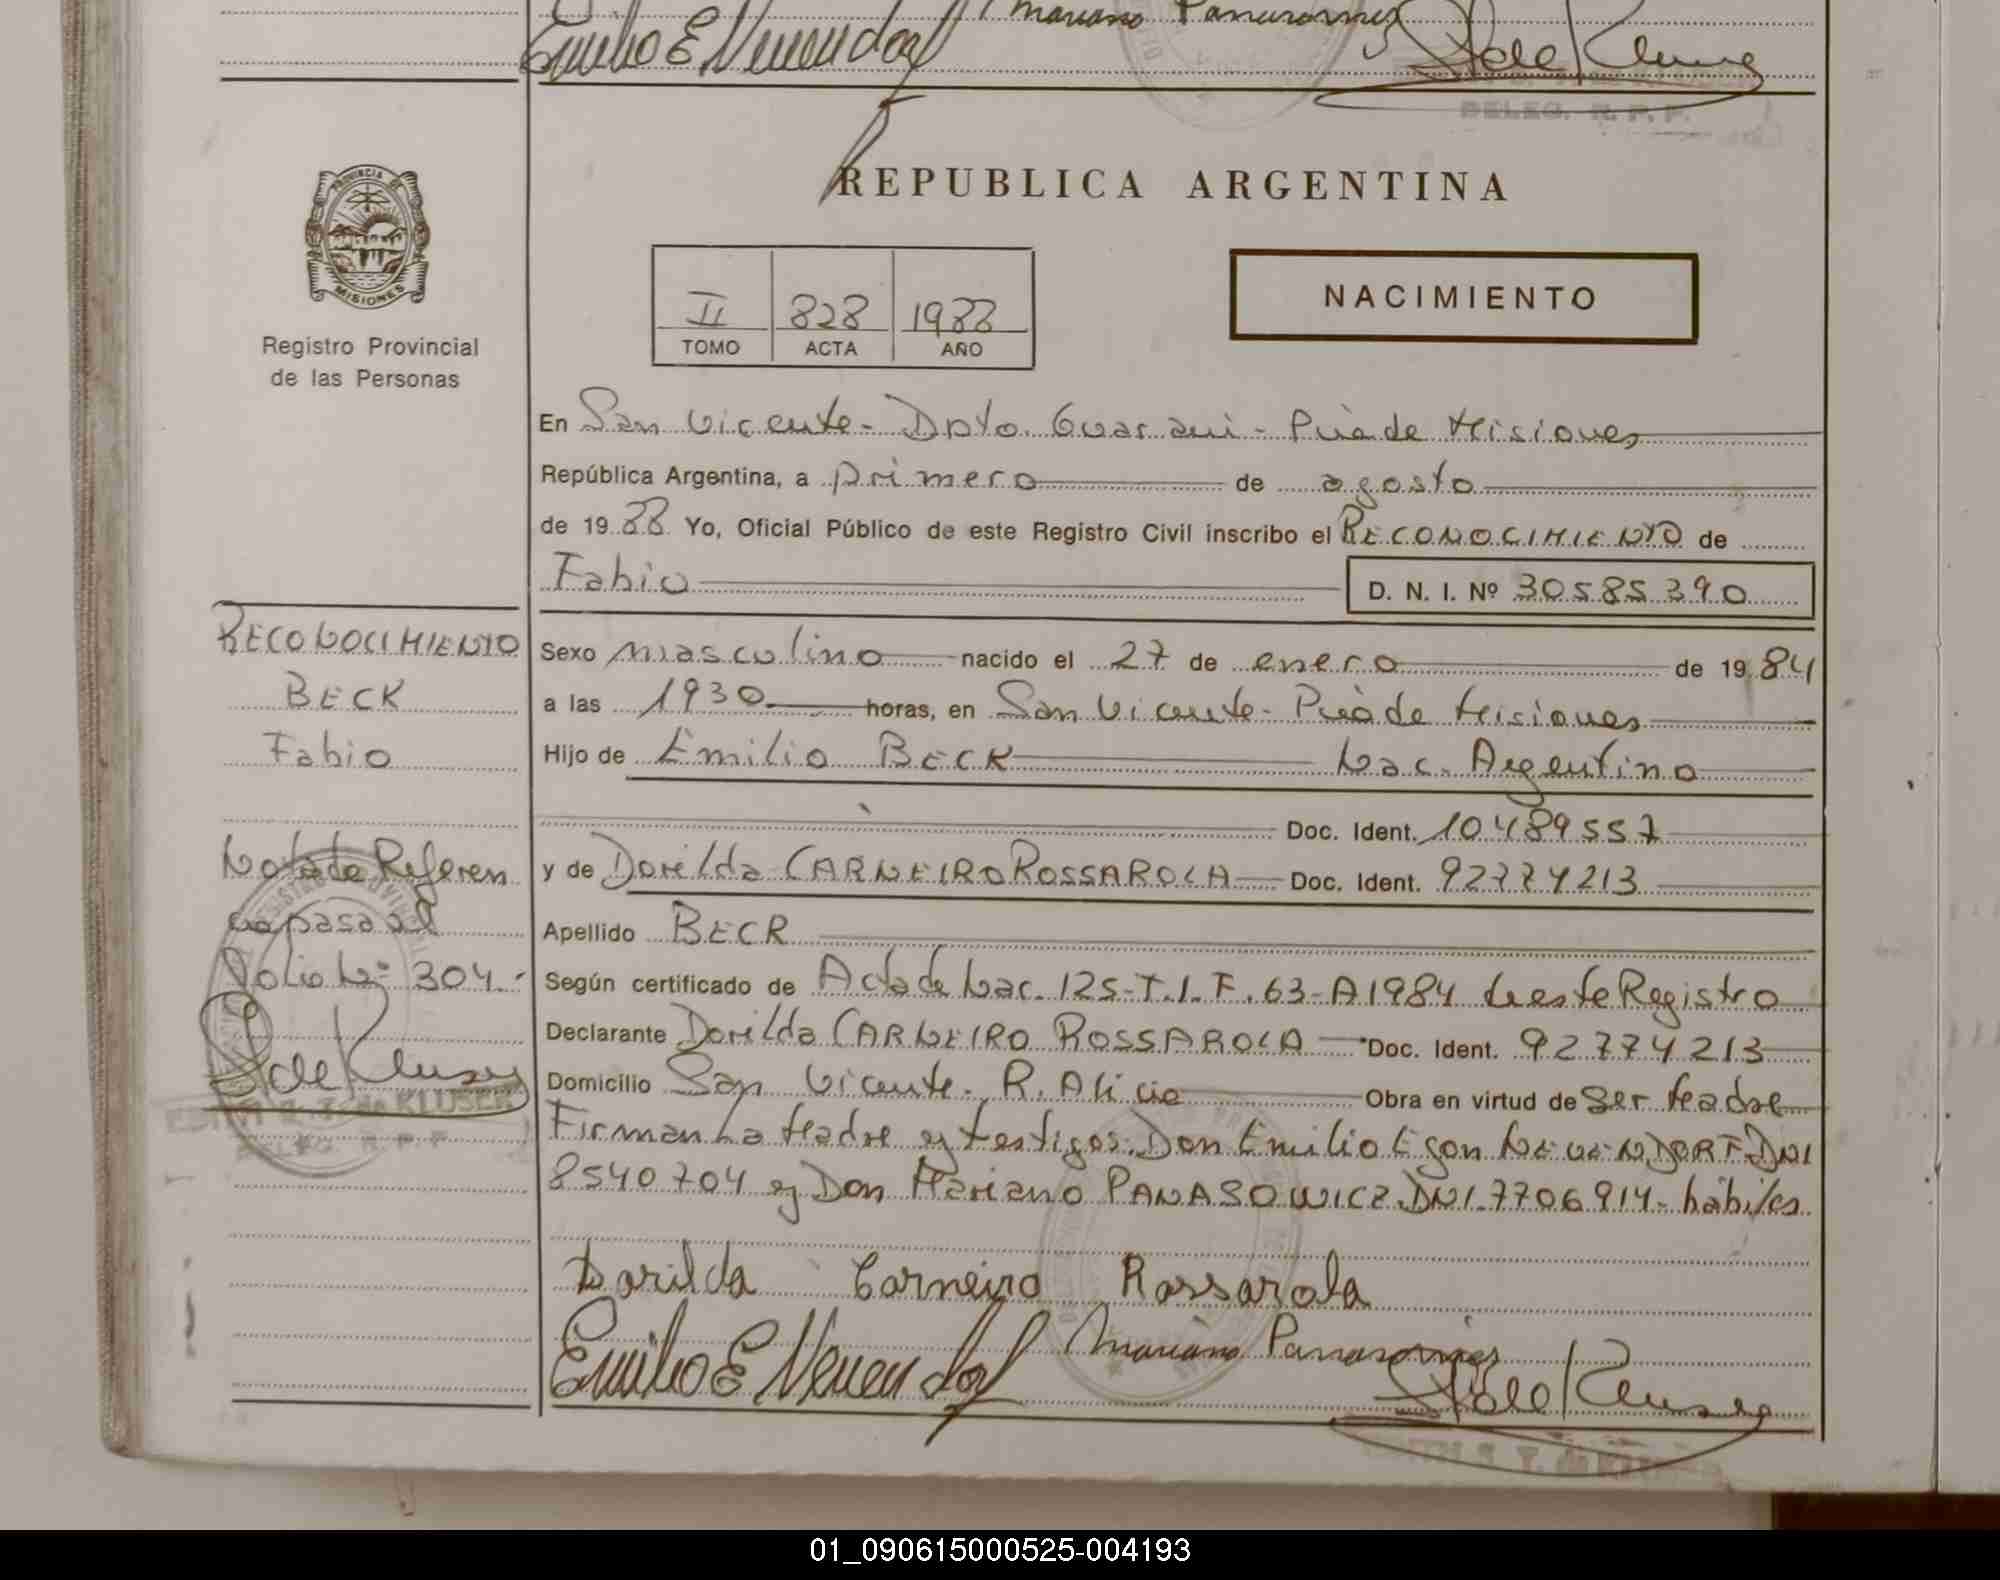 Emilio E Neuendorf
Mariano Panasowicz
DELEG. R. P. P.
PROVINCIA DE
MISIONES
Registro Provincial
de las Personas
REPUBLICA ARGENTINA
II 828 1988
TOMO ACTA AÑO
NACIMIENTO
En San Vicente - Dpto. Guarani - Pcia de Misiones
República Argentina, a primero de agosto
de 1988 Yo, Oficial Público de este Registro Civil inscribo el RECONOCIMIENTO de
Fabio D. N. I. Nº 30585390
Sexo masculino nacido el 27 de enero de 1984
a las 1930 horas, en San Vicente - Pcia de Misiones
Hijo de Emilio BECK Nac. Argentino
Doc. Ident. 10489557
y de Dorilda CARNEIRO ROSSAROLA Doc. Ident. 92774213
Apellido BECK
Según certificado de Acta de Nac. 125-T.I.F. 63-A1984 de este Registro
Declarante Dorilda CARNEIRO ROSSAROLA Doc. Ident. 92774213
Domicilio San Vicente - R. Alicia Obra en virtud de ser Madre
Firman La Madre y testigos: Don Emilio Egon NEUENDORF DNI
8540704 y Don Mariano PANASOWICZ DNI. 7706914 - hábiles
Dorilda Carneiro Rossarola
Emilio E Neuendorf
Mariano Panasowicz
RECONOCIMIENTO
BECK
Fabio
Nota de Referen
cia pasa al
Folio Nº 304.-
de KLUSER
DELEG. R. P. P.
01_090615000525-004193